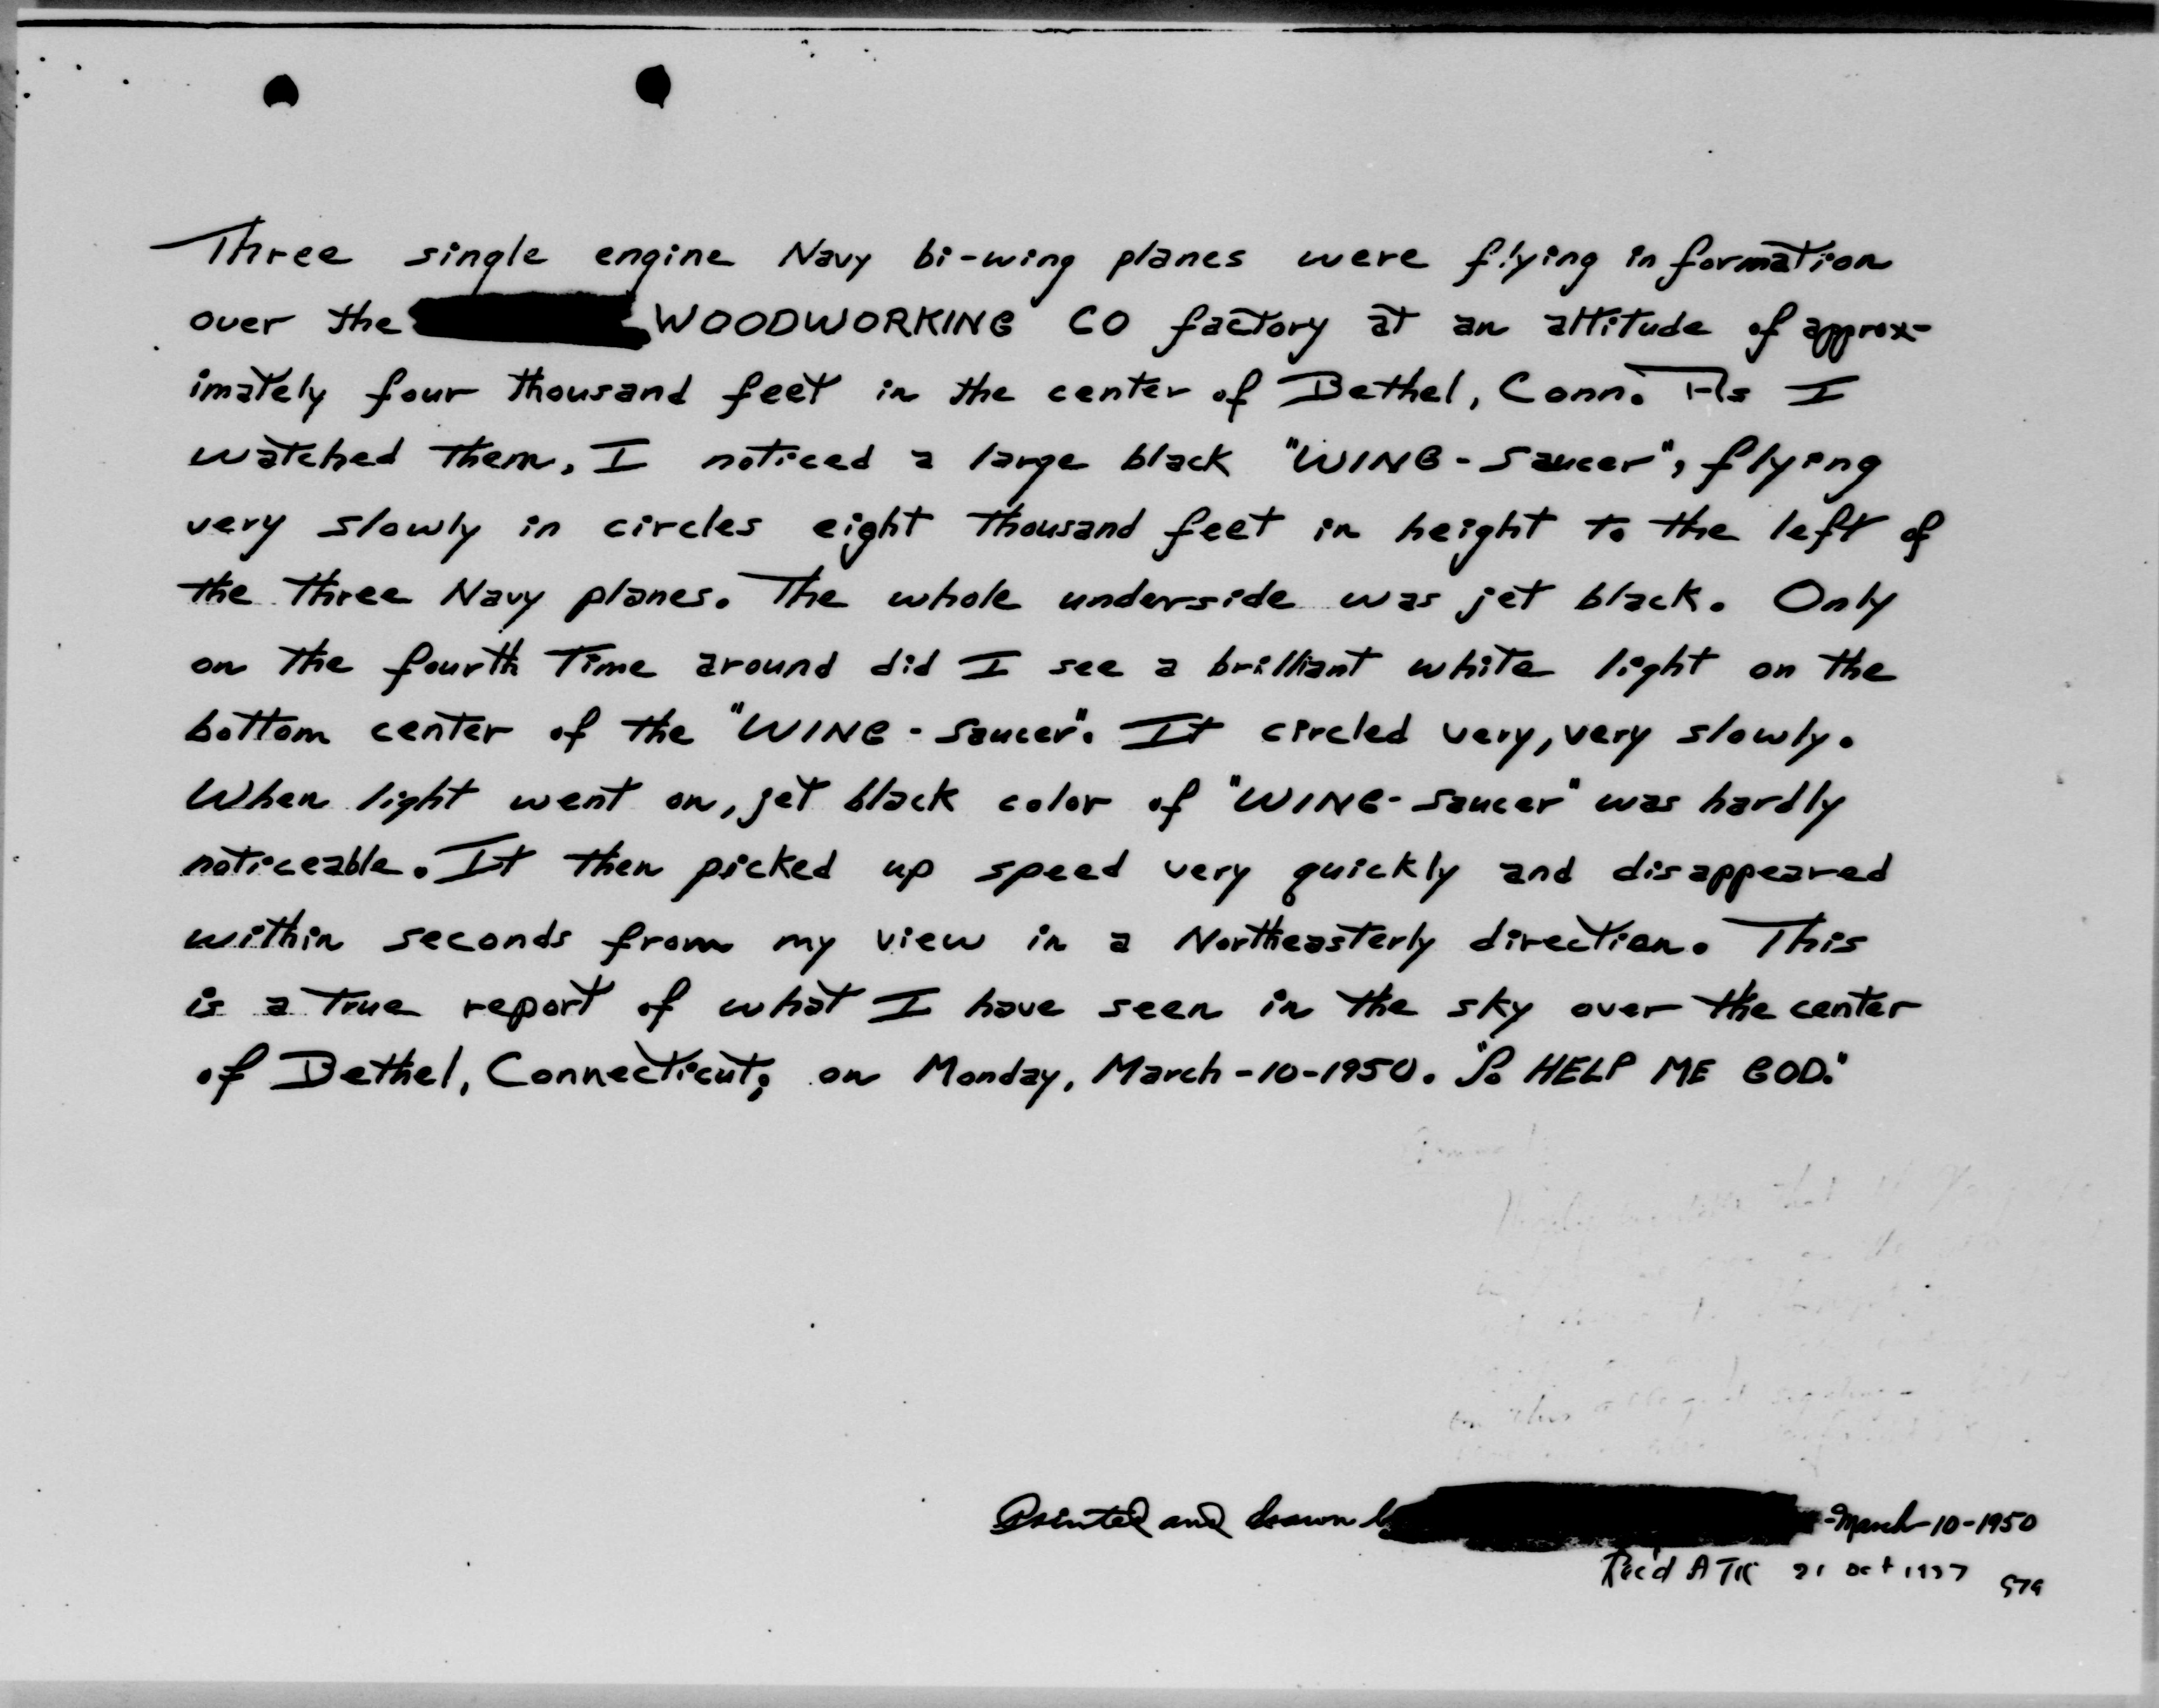 Three single engine Navy bi-wing planes were flying in formation
over the WOODWORKING CO factory at an attitude of approx-
imately four thousand feet in the center of Bethel, Conn. As I
watched them, I noticed a large black "WING-Saucer", flying
very slowly in circles eight thousand feet in height to the left of
the three Navy planes. The whole underside was jet black. Only
on the fourth Time around did I see a brilliant white light on the
bottom center of the "WING-Saucer". It circled very, very slowly.
When light went on, jet black color of "WING-Saucer" was hardly
noticeable. It then picked up speed very quickly and disappeared
within seconds from my view in a Northeasterly direction. This
is a true report of what I have seen in the sky over the center
of Bethel, Connecticut; on Monday, March-10-1950. "So HELP ME GOD."
Printed and drawn -March-10-1950
Rec'd ATIC 21 Oct